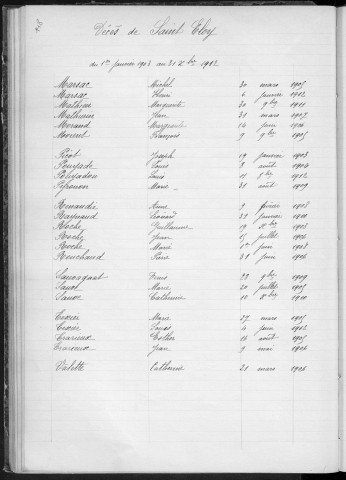 Décès de Saint Eloy
du 1er janvier 1903 au 31 Xbre 1912
Marsac Michel 30 mars 1905
Marsac Henri 4 janvier 1912
Mathieu Marguerite 30 9bre 1911
Mathieu Jean 31 mars 1907
Morand Marguerite 14 juin 1906
Mournet François 9 9bre 1905
Picot Joseph 19 janvier 1903
Louis 8 août 1904
11 8bre 1912
Marie 31 août 1909
Anne 9 février 1908
Raynaud Léonard 31 janvier 1910
Roche Guillaume 19 Xbre 1903
Roche Jean juillet 1906
Roche Marie 1er juin 1908
Rouchaud Pierre 31 juin 1906
Denis 29 9bre 1909
Marie 20 juillet 1905
Catherine 10 Xbre 1910
Texier Marie 27 mars 1905
Texier Louis 4 juin 1912
16 août 1905
Jean 9 mai 1906
Valette Catherine 21 mars 1906